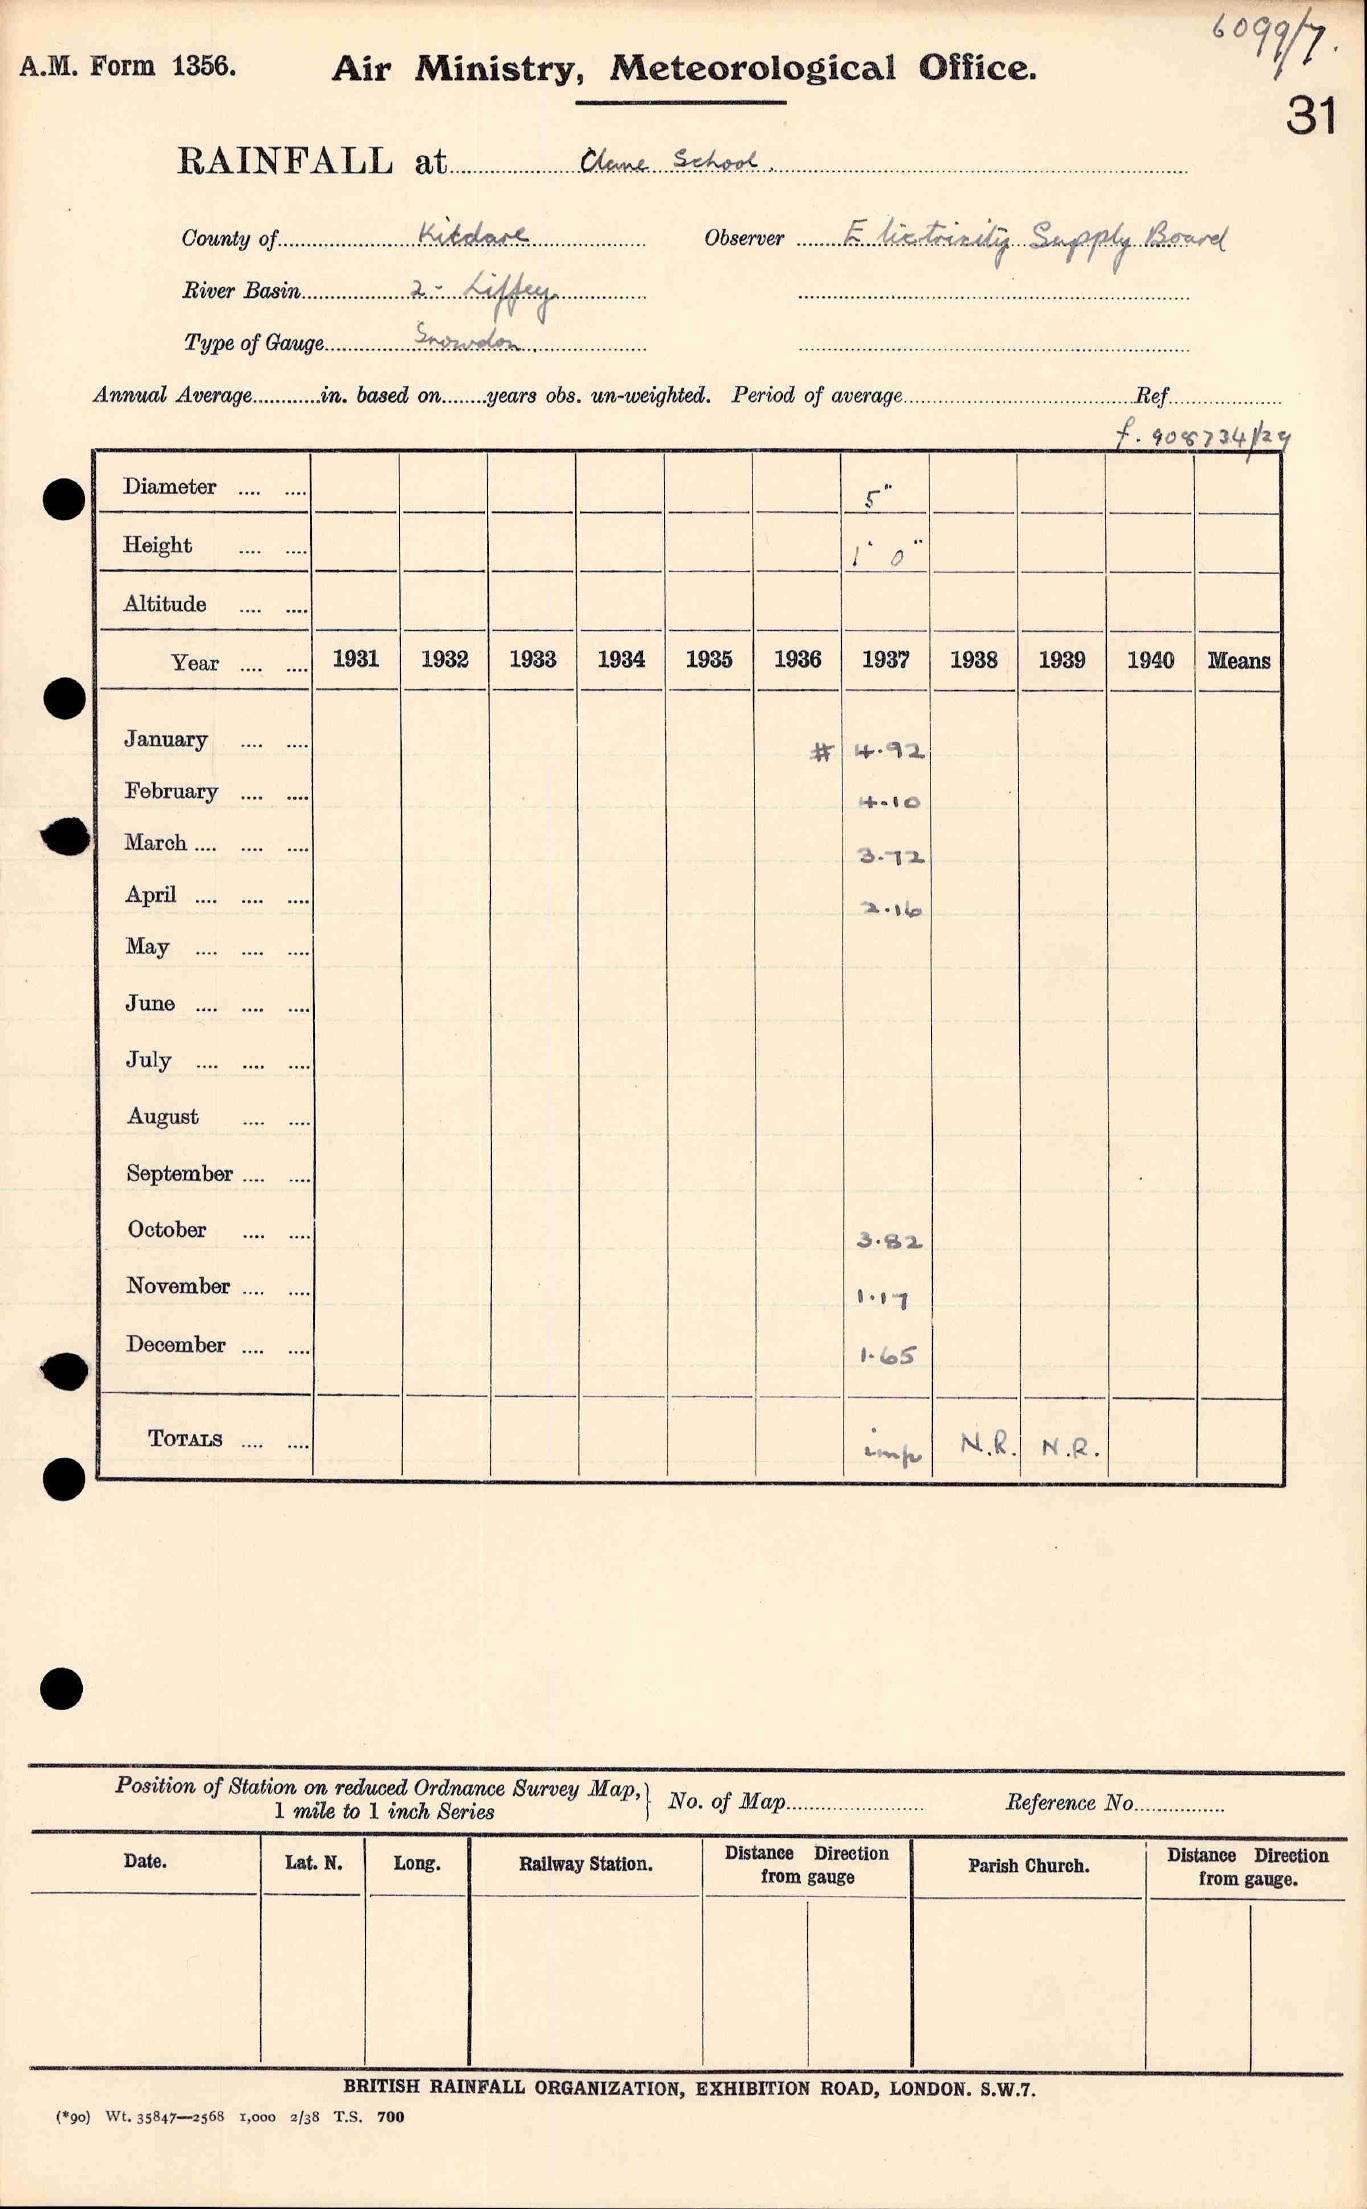 6099/7.
A.M. Form 1356. Air Ministry, Meteorological Office.
31
RAINFALL at Clane School.
County of Kildare Observer Electricity Supply Board
River Basin 2 - Liffey
Type of Gauge Snowdon.
Annual Average............in. based on........years obs. un-weighted. Period of average Ref
f. 908734/29
Diameter .... .... 5"
Height .... .... 1' 0"
Altitude .... ....
Year .... .... 1931 1932 1933 1934 1935 1936 1937 1938 1939 1940 Means
January .... .... # 4.92
February .... .... 4.10
March .... .... .... 3.72
April .... .... .... 2.16
May .... .... ....
June .... .... ....
July .... .... ....
August .... ....
September .... ....
October .... .... 3.82
November .... .... 1.17
December .... .... 1.65
TOTALS .... .... imp N.R. N.R.
Position of Station on reduced Ordnance Survey Map, } No. of Map Reference No
1 mile to 1 inch Series
Date. Lat. N. Long. Railway Station. Distance Direction from gauge Parish Church. Distance Direction from gauge.
BRITISH RAINFALL ORGANIZATION, EXHIBITION ROAD, LONDON. S.W.7.
(*90) Wt. 35847—2568 1,000 2/38 T.S. 700